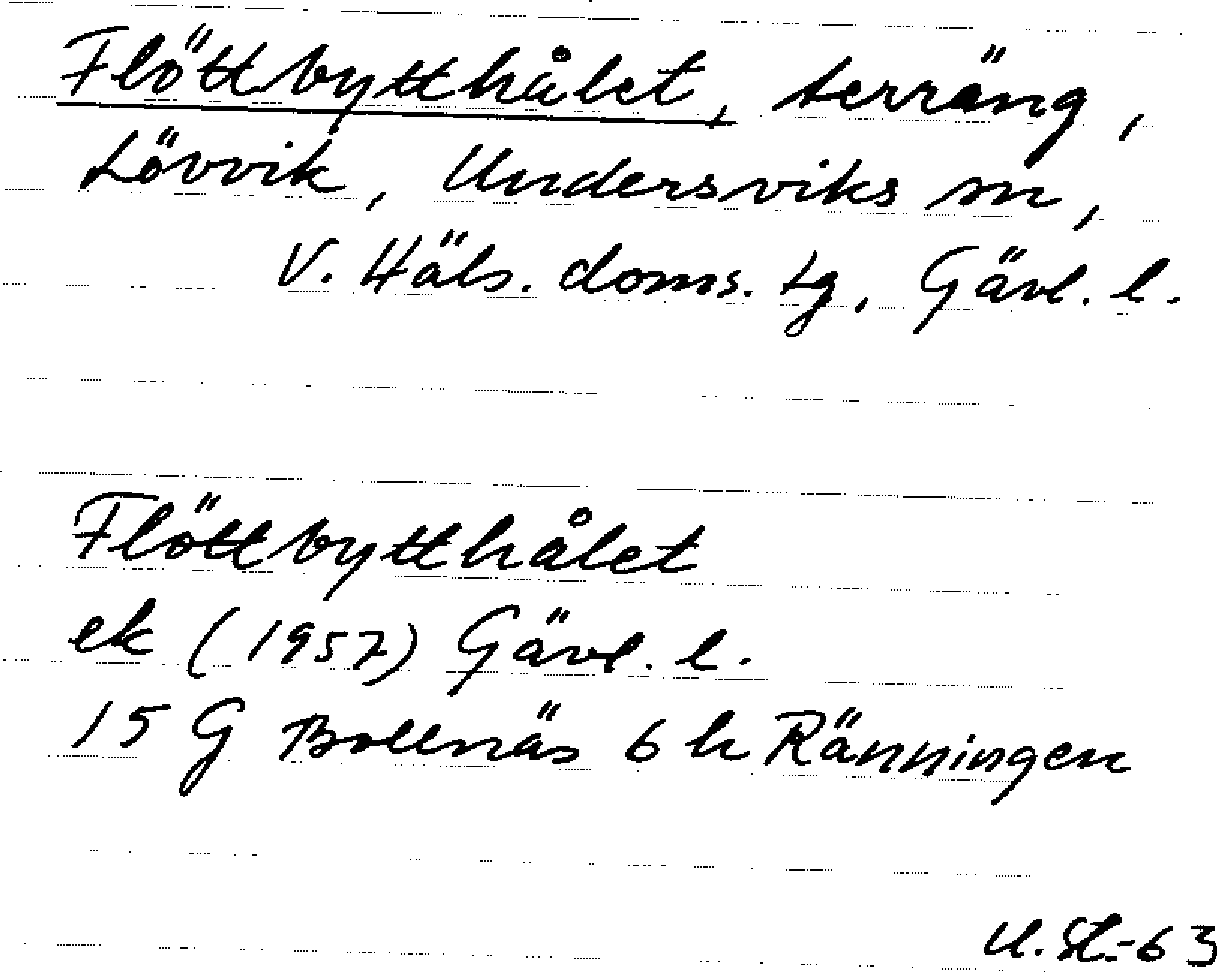 Flöttbytthålet, terräng,
Lövvik, Undersviks sn,
V. Häls. doms. tg, Gävl. l.
Flöttbytthålet
ek (1957) Gävl. l.
15 G Bollnäs 6 h Ränningen
U. St.-63